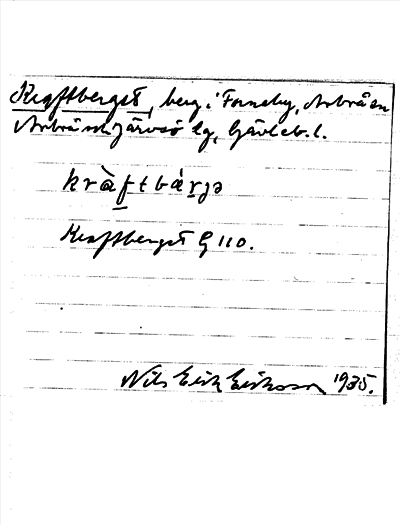 Kraftberget, berg i Forneby, Arbrå sn
Arbrå och Järvsö tg, Gävleb. l.
kràftbárjə
Kraftberget G 110.
Nils Erik Eriksson 1935.